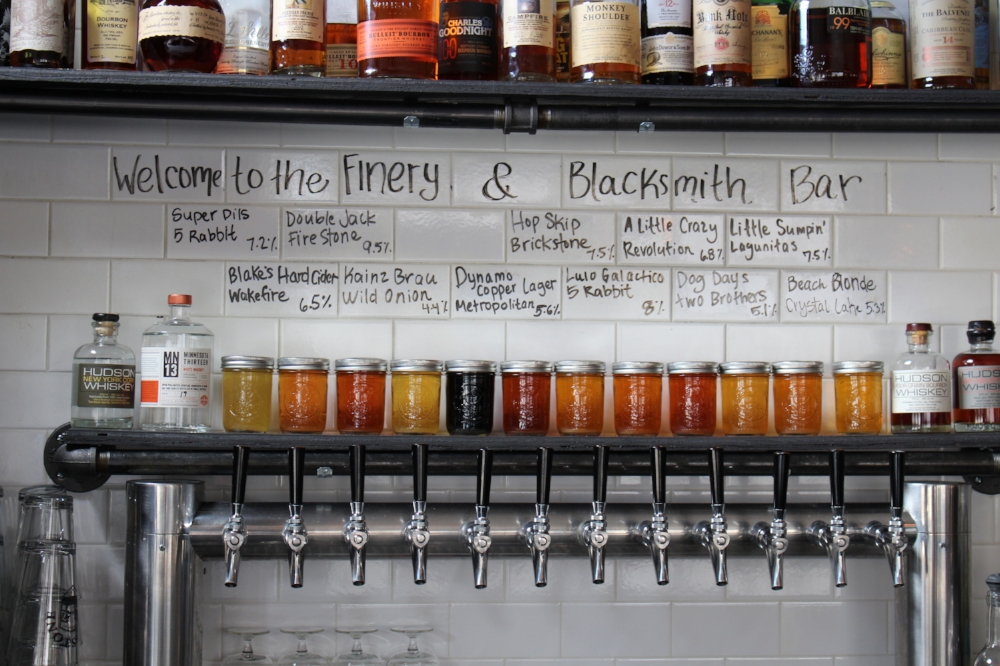 BOURBON
WHISKEY
BULLEIT BOURBON
CHARLES
GOODNIGHT
CAMPFIRE
MONKEY
SHOULDER
BALBLAIR
99
THE BALVENIE
CARIBBEAN CASK
14
Welcome to the Finery & Blacksmith Bar
Super Pils
5 Rabbit 7.2%
Double Jack
FireStone 9.5%
Hop Skip
Brickstone 7.5%
A Little Crazy
Revolution 6.8%
Little Sumpin'
Lagunitas 7.5%
Blake's Hard Cider
Wakefire 6.5%
Kainz Brau
Wild Onion 4.4%
Dynamo
Copper Lager
Metropolitan 5.6%
Lulo Galactico
5 Rabbit 8%
Dog Days
Two Brothers 5.1%
Beach Blonde
Crystal Lake 5.3%
HUDSON
NEW YORK CORN
WHISKEY
MN
13
MINNESOTA
THIRTEEN
HUDSON
WHISKEY
HUDSON
WHISKEY